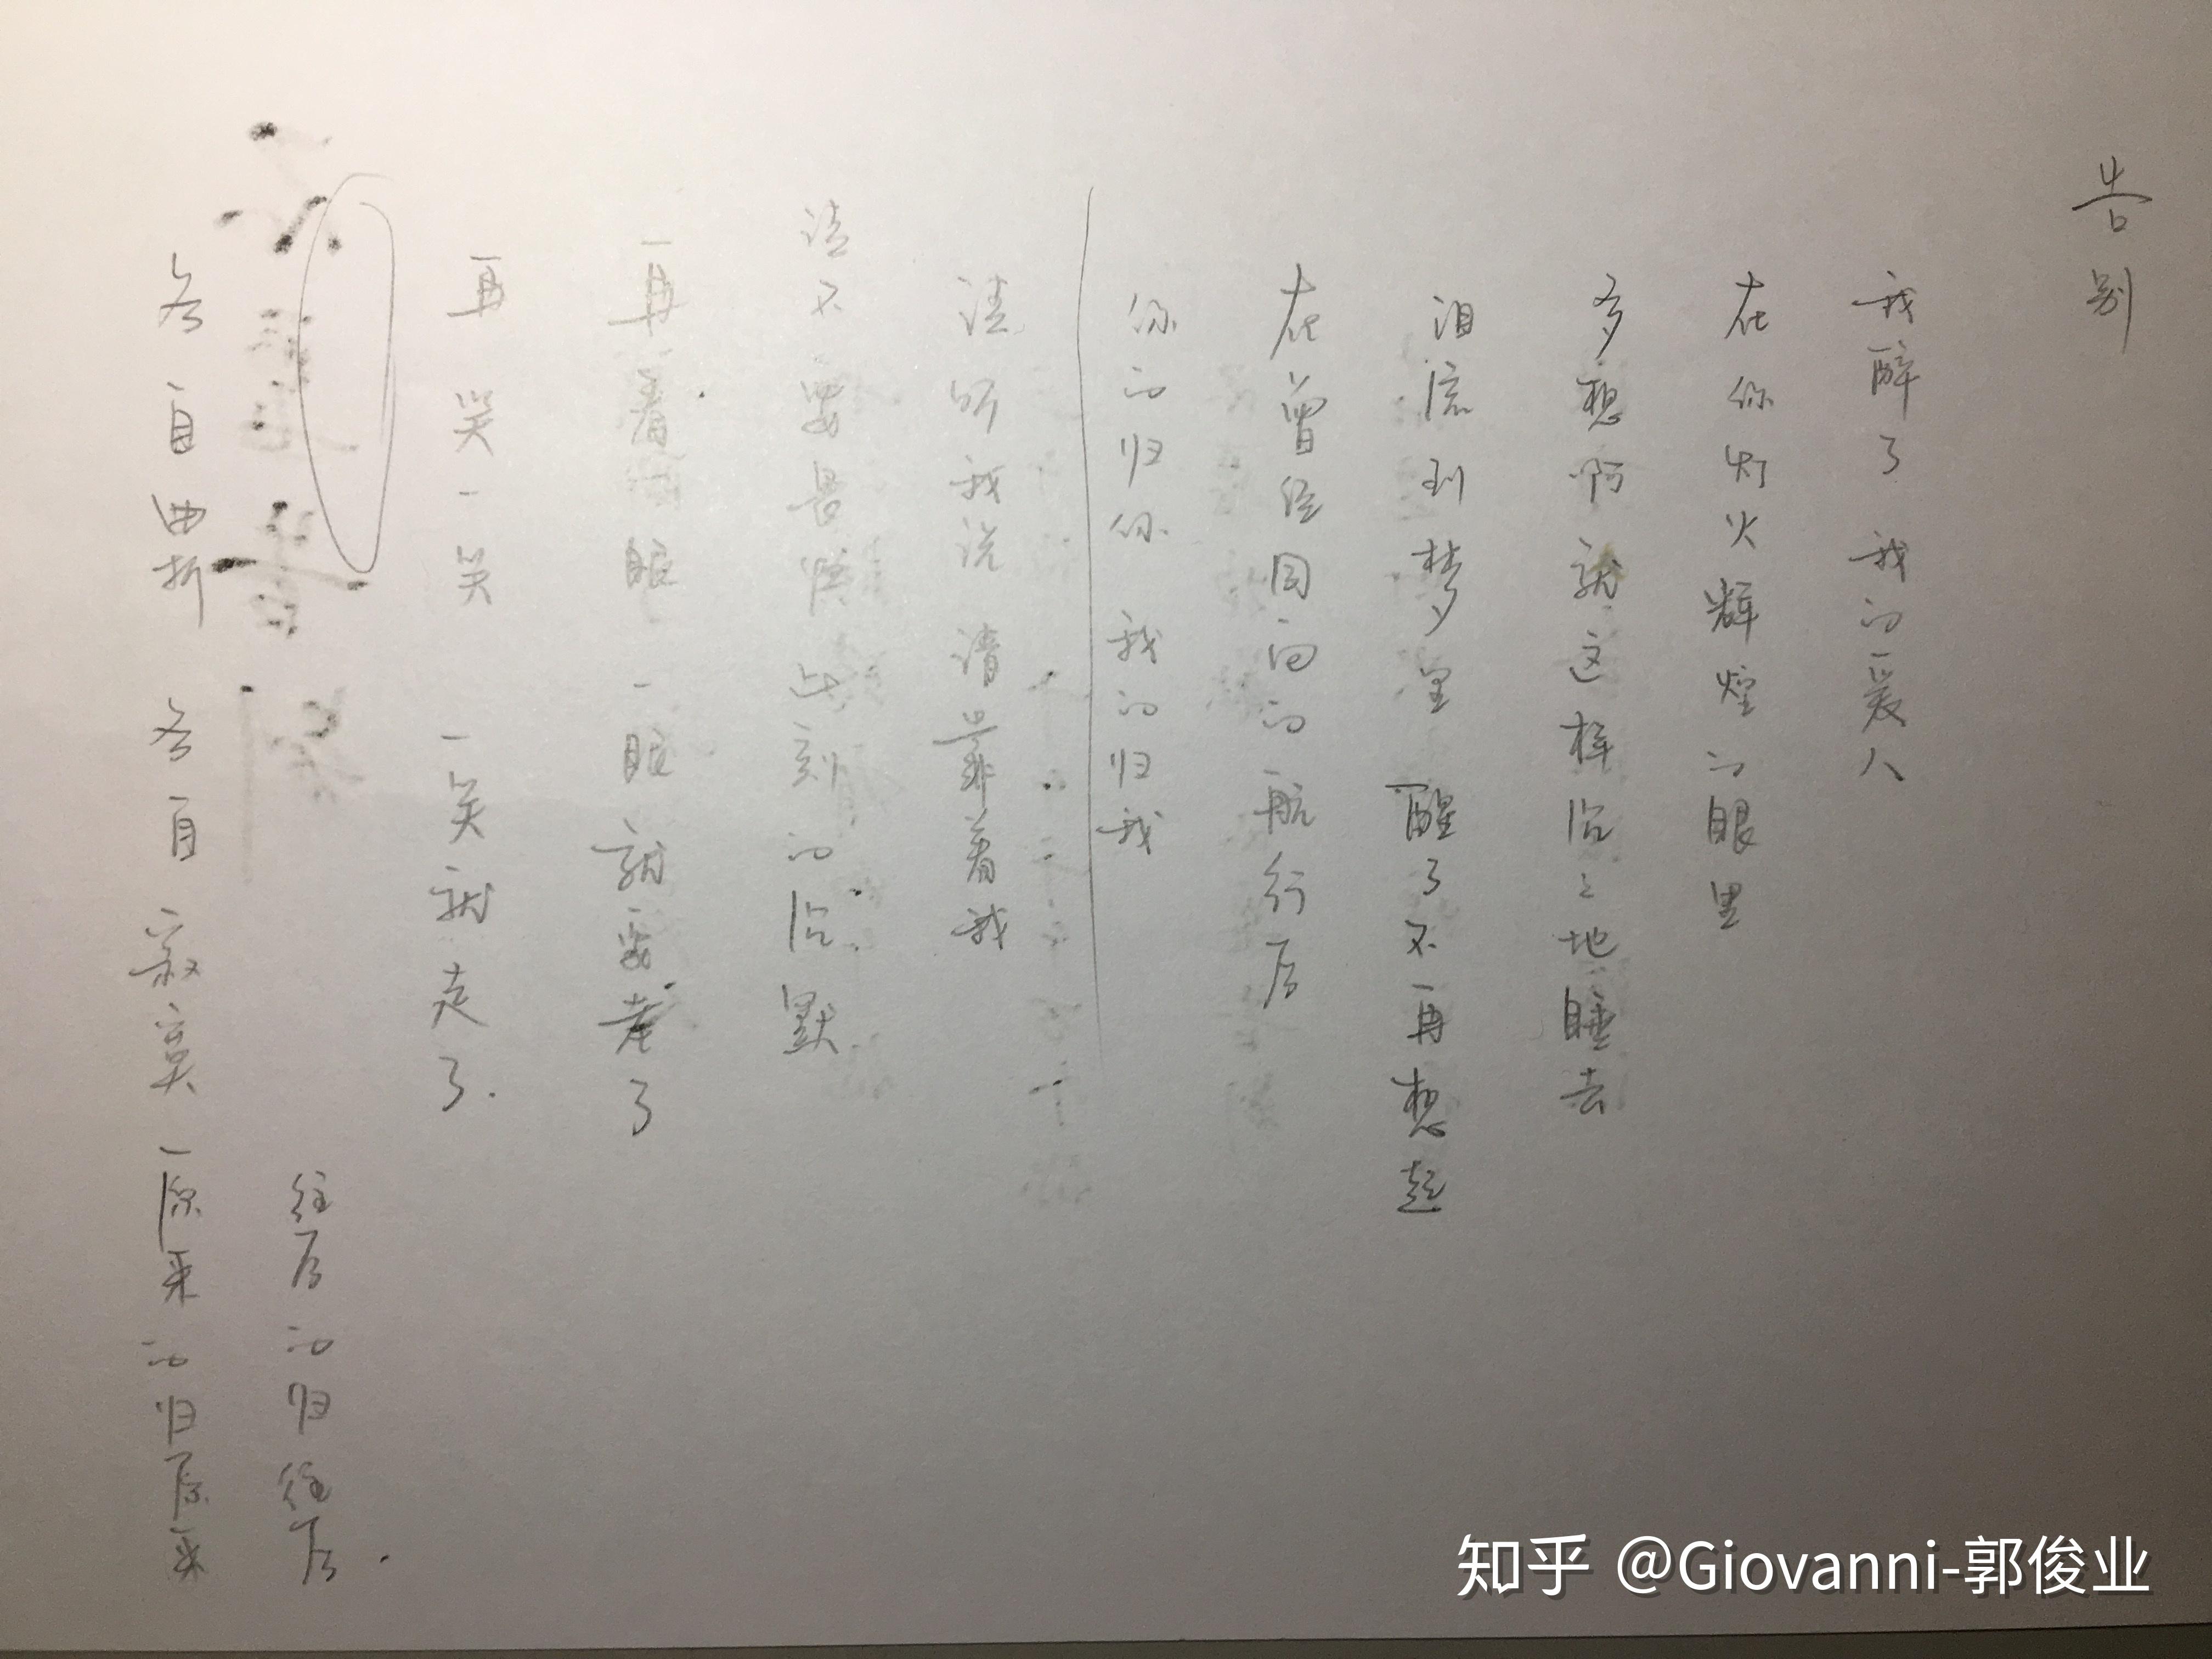 告别
我醉了 我的爱人
在你灯火辉煌的眼里
多想啊 就这样沉沉地睡去
泪流到梦里 醒了不再想起
在曾经同向的航行后
你的归你 我的归我
请听我说 请靠着我
请不要畏惧 此刻的沉默
再看一眼 一眼就要老了
再笑一笑 一笑就走了
各自曲折 各自寂寞 原来的归原来
往后的归往后
知乎 @Giovanni-郭俊业